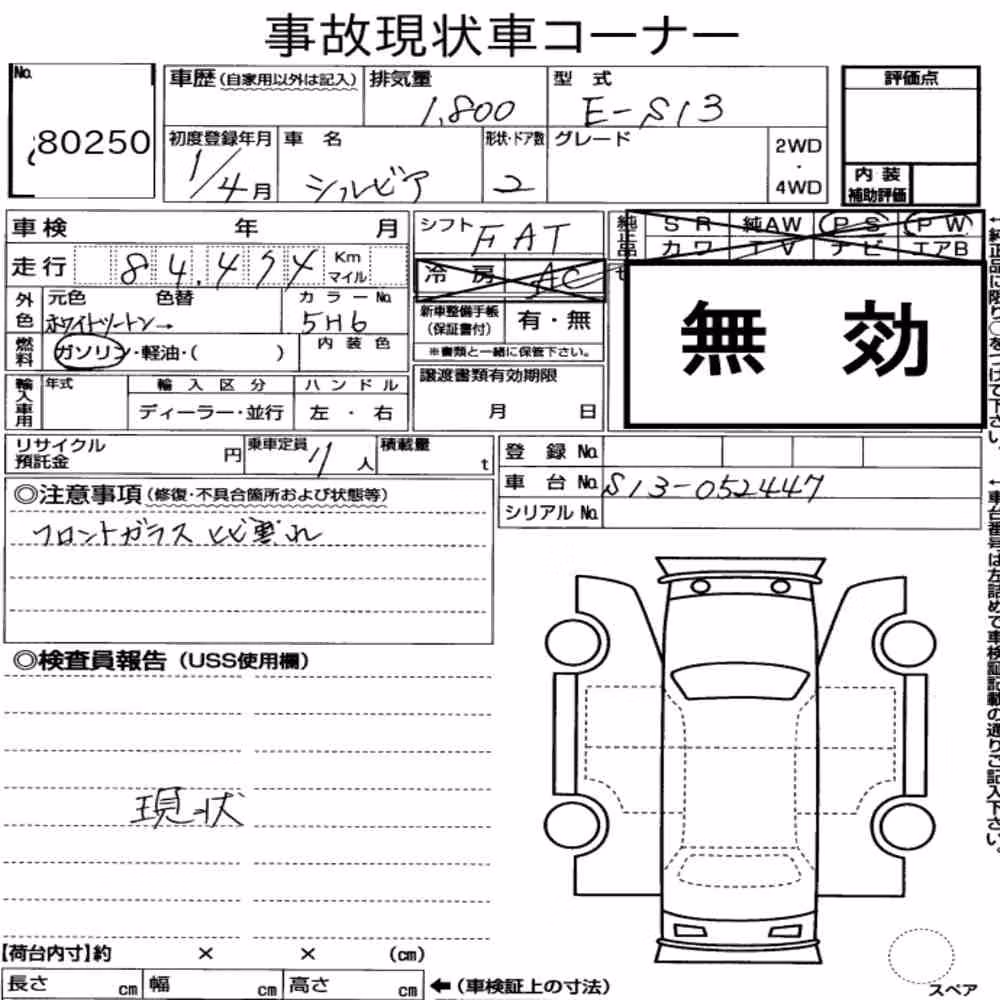 事故現状車コーナー
No. 80250
車歴(自家用以外は記入) 排気量 1,800 型式 E-S13 評価点
初度登録年月 1/4月 車名 シルビア 形状・ドア数 2 グレード 2WD・4WD
内装補助評価
車検 年 月 シフト FAT 純正品 SR 純AW PS PW
カワ TV ナビ エアB
走行 84,474 Km マイル 冷房 AC
無効
外色 元色 色替 カラーNo. 新車整備手帳(保証書付) 有・無
ホワイトツートン→ 5H6
※書類と一緒に保管下さい。
燃料 ガソリン・軽油・( ) 内装色
譲渡書類有効期限
月 日
輸入車用 年式 輸入区分 ハンドル
ディーラー・並行 左・右
リサイクル預託金 円 乗車定員 人 積載量 t
登録No.
車台No. S13-052447
シリアルNo.
◎注意事項(修復・不具合箇所および状態等)
フロントガラス
◎検査員報告(USS使用欄)
現状
【荷台内寸】約 × × (cm)
長さ cm 幅 cm 高さ cm ←(車検証上の寸法)
スペア
←純正品に限り○をつけて下さい。
←車台番号は左詰めで車検証記載の通りご記入下さい。